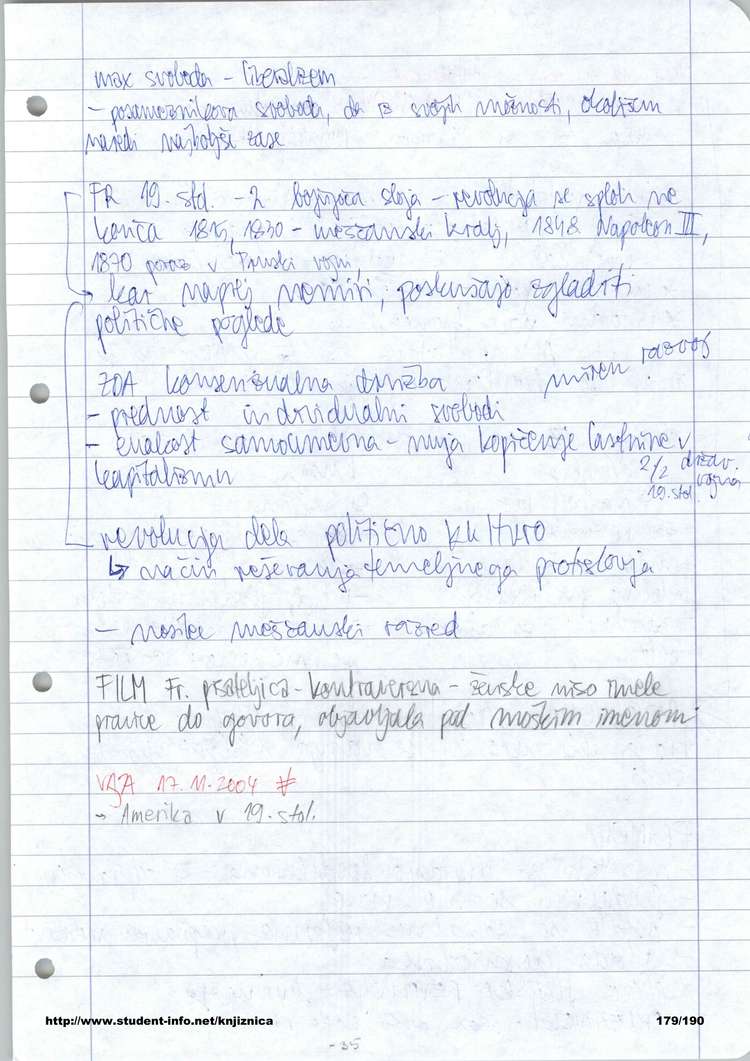 max svoboda - liberalizem
- posameznikova svoboda, da iz svojih možnosti, okoliščin
naredi najboljše zase
FR 19. std. - 2 bojujoča sloja - revolucija se sploh ne
konča 1815, 1830 - meščanski kralj, 1848 Napoleon III,
1870 poraz v Pruski vojni,
kar naprej nemiri, poskušajo zgladiti
politične poglede
ZDA konsenzualna družba miren razvoj
- prednost individualni svobodi
- enakost samoumevna - nuja kopičenje lastnine v
kapitalizmu
2/2 držav. vojna
19. stol.
revolucija dela politično kulturo
↳ način reševanja temeljnega protislovja
- nosilec meščanski razred
FILM Fr. pisateljica - kontraverzna - ženske niso imele
pravice do govora, objavljala pod moškim imenom
VAJA 17. 11. 2004 #
→ Amerika v 19. stol.
http://www.student-info.net/knjiznica 179/190
- 35